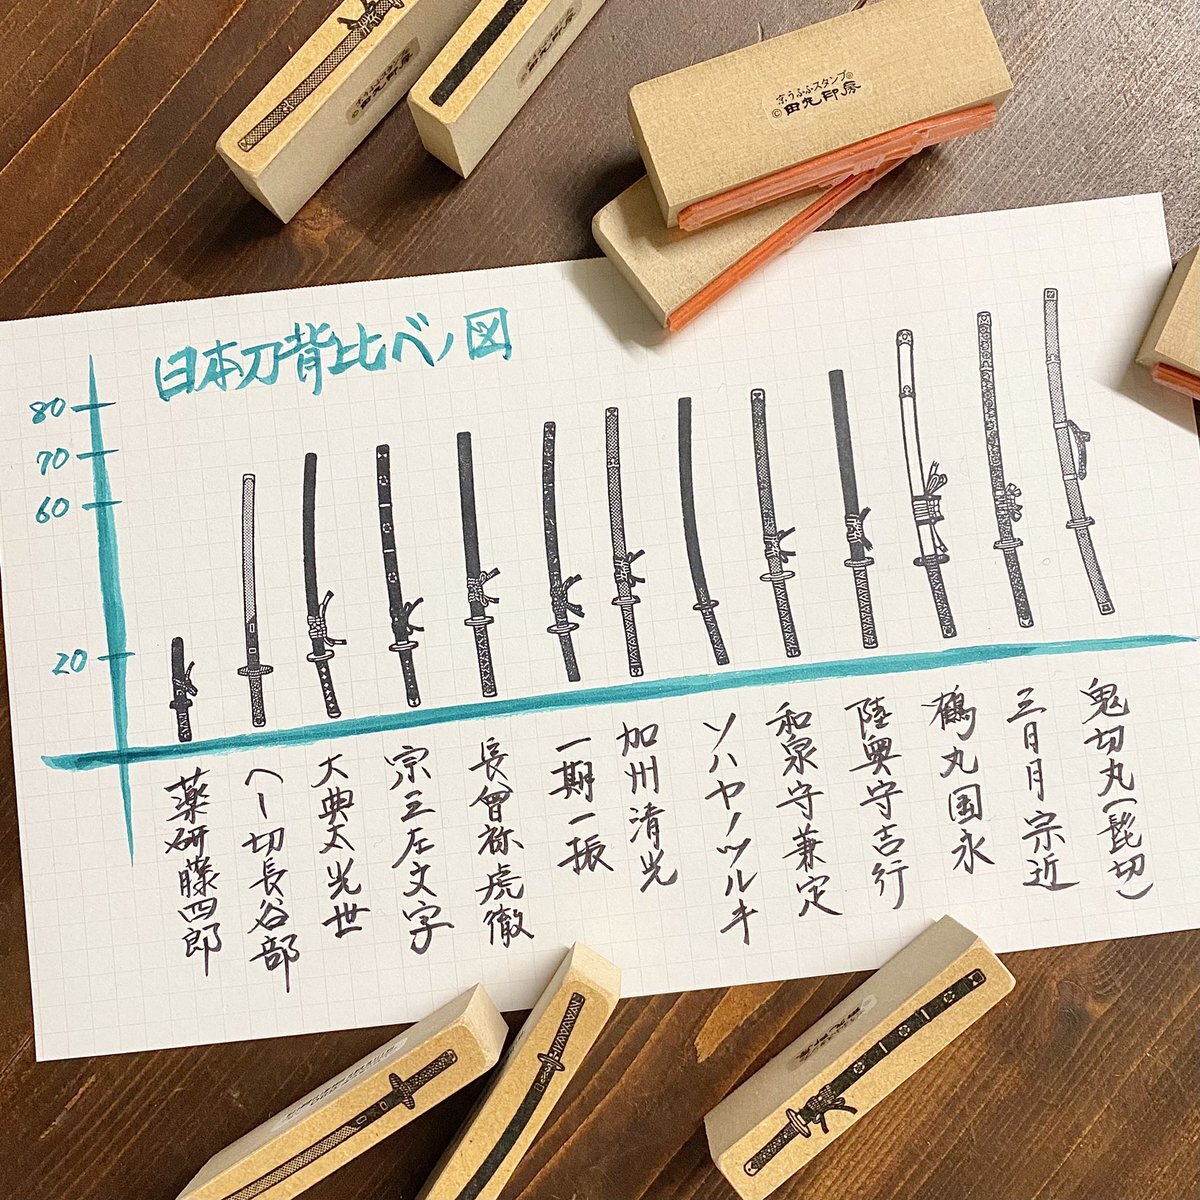 京うふふスタンプ®
©田丸印房
日本刀背比ベノ図
80
70
60
20
薬研藤四郎
へし切長谷部
大典太光世
宗三左文字
長曽祢虎徹
一期一振
加州清光
ソハヤノツルキ
和泉守兼定
陸奥守吉行
鶴丸国永
三日月宗近
鬼切丸(髭切)